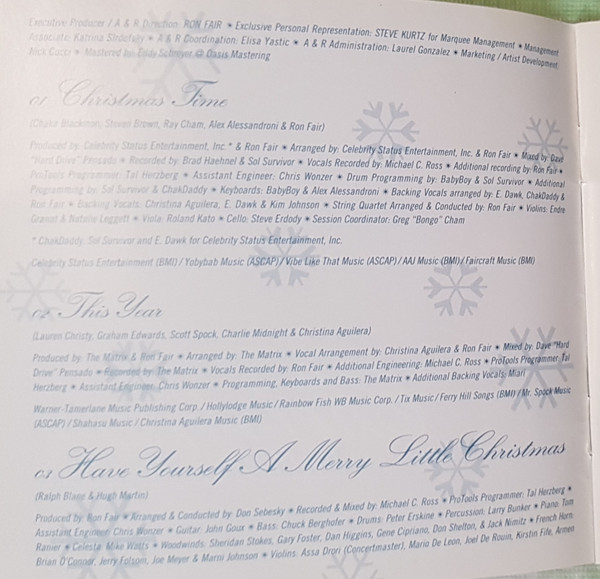 Executive Producer / A & R Direction: RON FAIR ✶ Exclusive Personal Representation: STEVE KURTZ for Marquee Management ✶ Management
Associate: Katrina Sirdofsky ✶ A & R Coordination: Elisa Yastic ✶ A & R Administration: Laurel Gonzalez ✶ Marketing / Artist Development:
Nick Cucci ✶ Mastered by: Eddy Schreyer @ Oasis Mastering
01 Christmas Time
(Chaka Blackmon, Steven Brown, Ray Cham, Alex Alessandroni & Ron Fair)
Produced by: Celebrity Status Entertainment, Inc.* & Ron Fair ✶ Arranged by: Celebrity Status Entertainment, Inc. & Ron Fair ✶ Mixed by: Dave
"Hard Drive" Pensado ✶ Recorded by: Brad Haehnel & Sol Survivor ✶ Vocals Recorded by: Michael C. Ross ✶ Additional recording by: Ron Fair ✶
ProTools Programmer: Tal Herzberg ✶ Assistant Engineer: Chris Wonzer ✶ Drum Programming by: BabyBoy & Sol Survivor ✶ Additional
Programming by: Sol Survivor & ChakDaddy ✶ Keyboards: BabyBoy & Alex Alessandroni ✶ Backing Vocals arranged by: E. Dawk, ChakDaddy &
Ron Fair ✶ Backing Vocals: Christina Aguilera, E. Dawk & Kim Johnson ✶ String Quartet Arranged & Conducted by: Ron Fair ✶ Violins: Endre
Granat & Natalie Leggett ✶ Viola: Roland Kato ✶ Cello: Steve Erdody ✶ Session Coordinator: Greg "Bongo" Cham
* ChakDaddy, Sol Survivor and E. Dawk for Celebrity Status Entertainment, Inc.
Celebrity Status Entertainment (BMI) / Yobybab Music (ASCAP) / Vibe Like That Music (ASCAP) / AAJ Music (BMI) / Faircraft Music (BMI)
02 This Year
(Lauren Christy, Graham Edwards, Scott Spock, Charlie Midnight & Christina Aguilera)
Produced by: The Matrix & Ron Fair ✶ Arranged by: The Matrix ✶ Vocal Arrangement by: Christina Aguilera & Ron Fair ✶ Mixed by: Dave "Hard
Drive" Pensado ✶ Recorded by: The Matrix ✶ Vocals Recorded by: Ron Fair ✶ Additional Engineering: Michael C. Ross ✶ ProTools Programmer: Tal
Herzberg ✶ Assistant Engineer: Chris Wonzer ✶ Programming, Keyboards and Bass: The Matrix ✶ Additional Backing Vocals: Miari
Warner-Tamerlane Music Publishing Corp. / Hollylodge Music / Rainbow Fish WB Music Corp. / Tix Music / Ferry Hill Songs (BMI) / Mr. Spock Music
(ASCAP) / Shahasu Music / Christina Aguilera Music (BMI)
03 Have Yourself A Merry Little Christmas
(Ralph Blane & Hugh Martin)
Produced by: Ron Fair ✶ Arranged & Conducted by: Don Sebesky ✶ Recorded & Mixed by: Michael C. Ross ✶ ProTools Programmer: Tal Herzberg ✶
Assistant Engineer: Chris Wonzer ✶ Guitar: John Goux ✶ Bass: Chuck Berghofer ✶ Drums: Peter Erskine ✶ Percussion: Larry Bunker ✶ Piano: Tom
Ranier ✶ Celesta: Mike Watts ✶ Woodwinds: Sheridan Stokes, Gary Foster, Dan Higgins, Gene Cipriano, Don Shelton, & Jack Nimitz ✶ French Horn:
Brian O'Connor, Jerry Folsom, Joe Meyer & Marni Johnson ✶ Violins: Assa Drori (Concertmaster), Mario De Leon, Joel De Rouin, Kirstin Fife, Armen